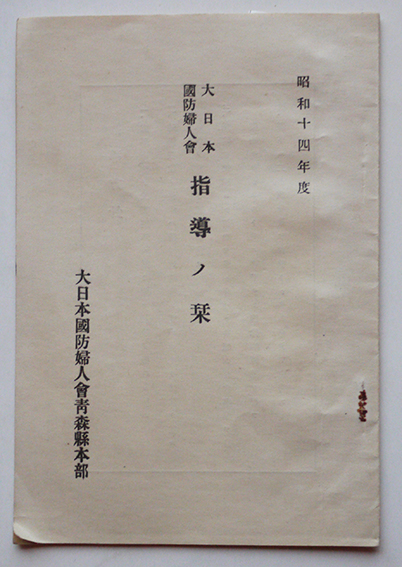 昭和十四年度
大日本
國防婦人會
指導ノ栞
大日本國防婦人會靑森縣本部